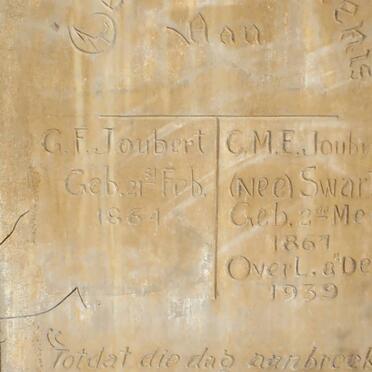 Van
G. F. Joubert
Geb. 21st Feb.
1864
C. M. E. Joube
(Nee) Swar
Geb. 2de Me
1867
Overl. 8st De
1939
"Totdat die dag aanbreek